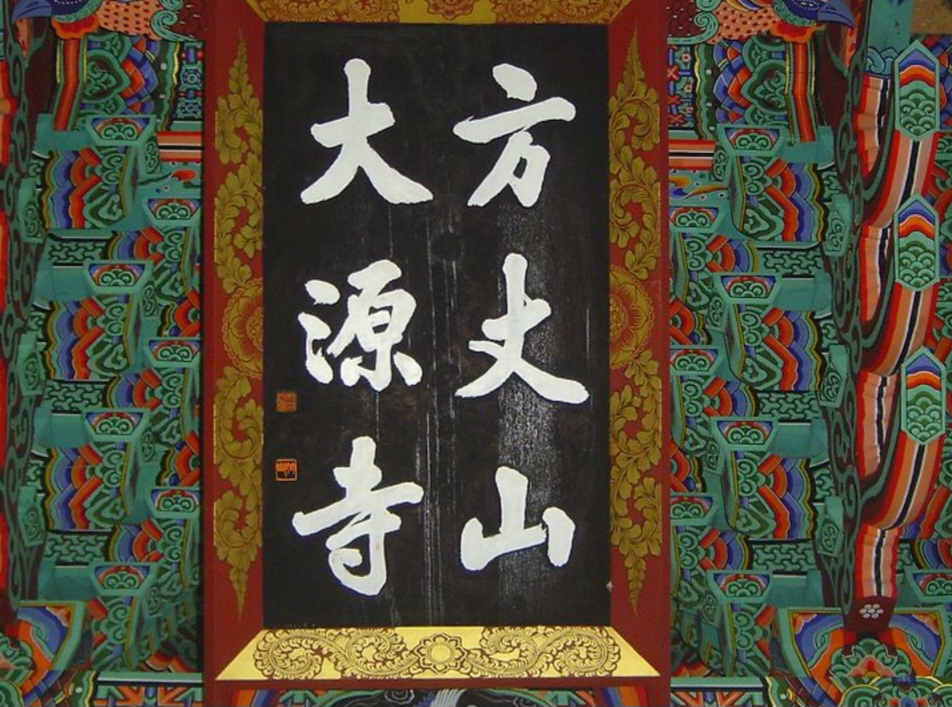 方丈山
大源寺